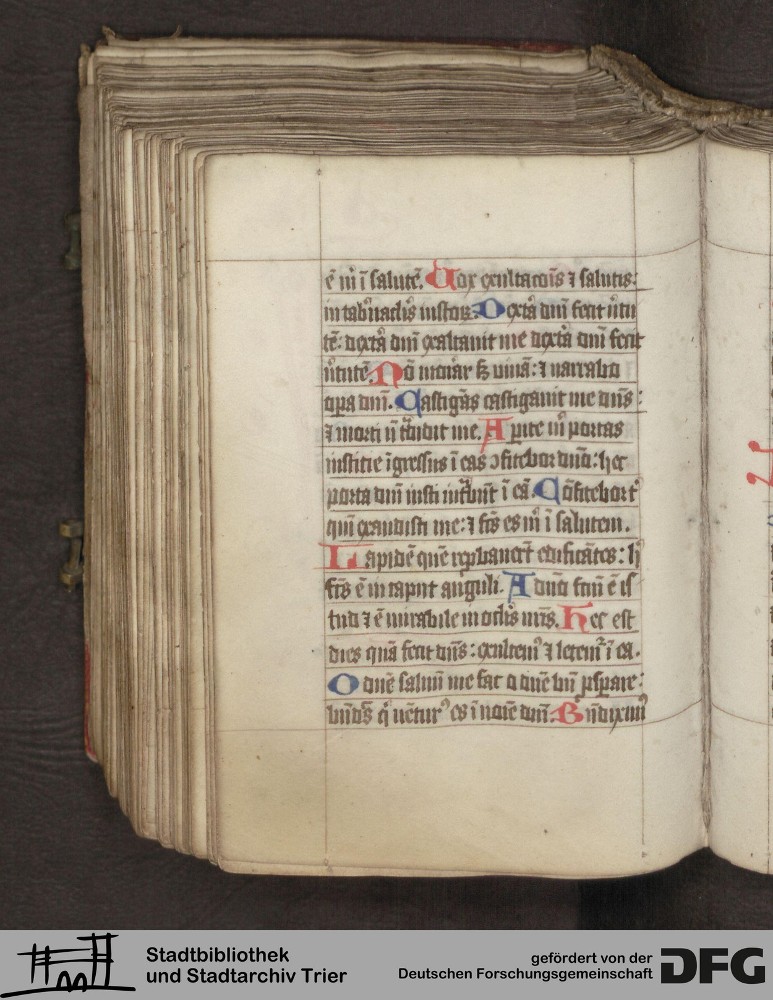 ē m̄ ī salutē. Vox exultacōis ⁊ salutis:
in tab'naclīs iustoꝝ. Dext̄a dn̄i fecit v̄tu
tē: dext̄a dn̄i exaltauit me dext̄a dn̄i fecit
v̄tutē. Nō moriar sꝫ viuā: ⁊ narrabo
oꝑa dn̄i. Castigās castigauit me dn̄s:
⁊ morti n̄ t̄didit me. Aperite m̄ portas
iusticie īgressus ī eas ↄfitebor dn̄o: hec
porta dn̄i iusti int̄būt ī eā. Cōfitebor t'
qm̄ exaudisti me: ⁊ fc̄s es m̄ i salutem.
Lapidē quē rep̄bauer̄t edificātes: h'
fc̄s ē in caput anguli. A dn̄o fc̄m ē is
tud ⁊ ē mirabile in oc̄lis nr̄is. Hec est
dies quā fecit dn̄s: exultem' ⁊ letem̄ ī ea.
O dn̄e saluū me fac o dn̄e bn̄ ꝓsꝑare:
bn̄dc̄s q̄ uētur' es ī noīe dn̄i. Bn̄dixim'
Stadtbibliothek
und Stadtarchiv Trier
gefördert von der
Deutschen Forschungsgemeinschaft
DFG